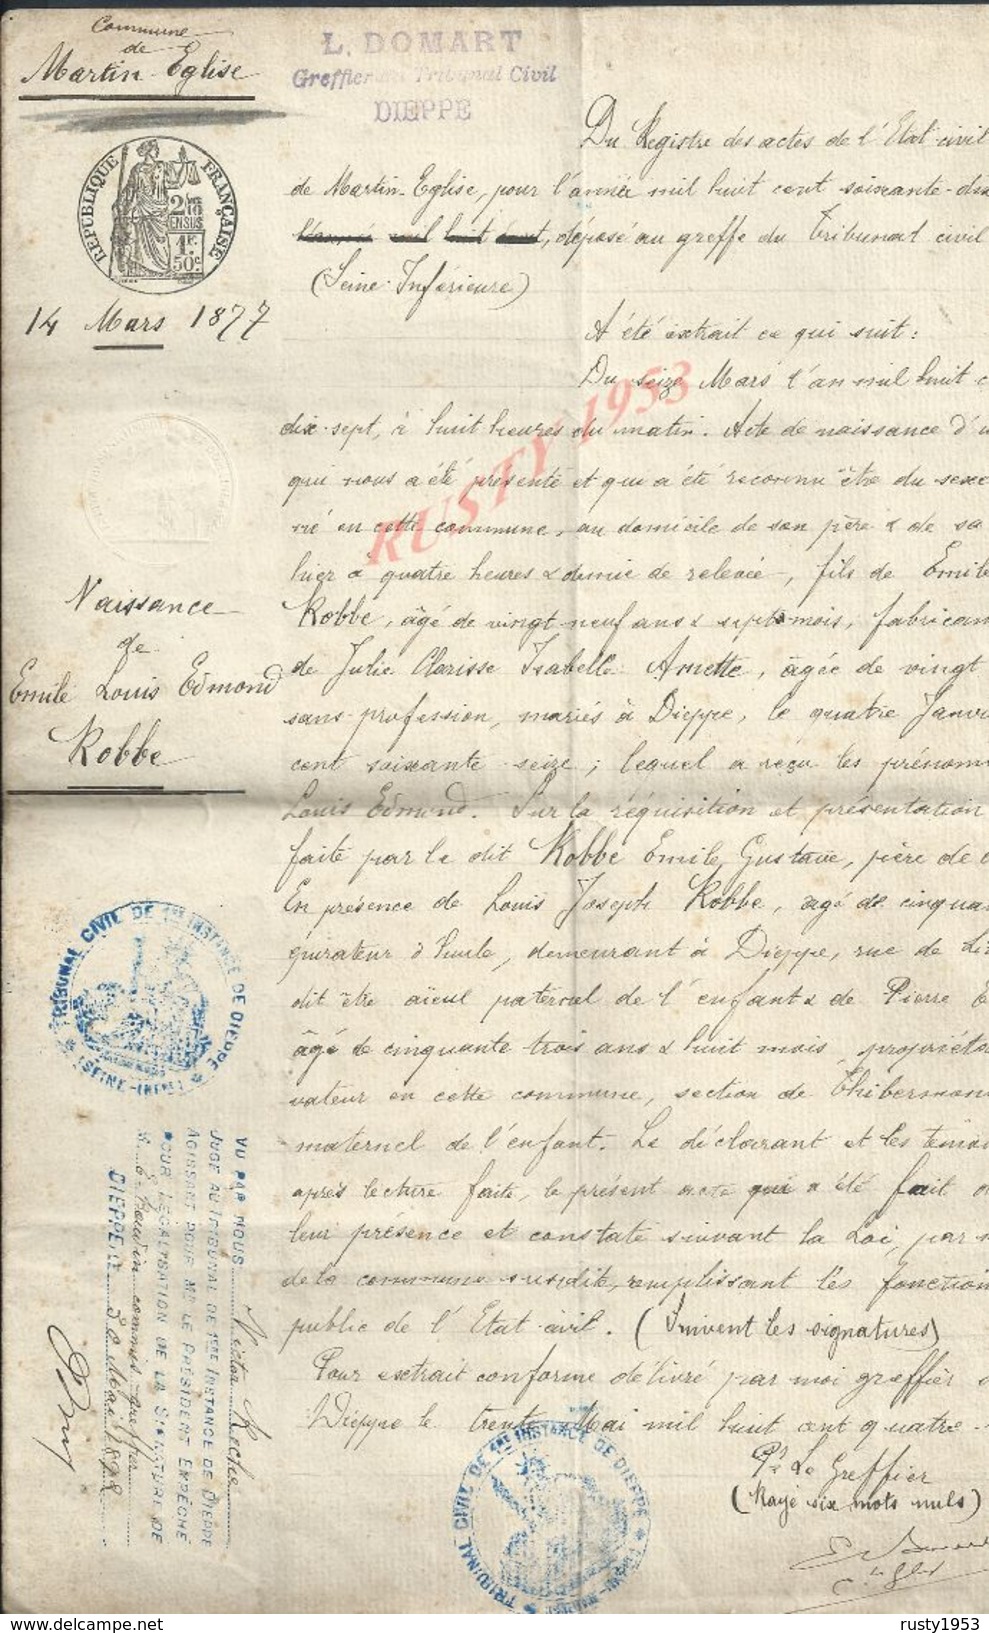 Commune
de
Martin-Eglise
L. DOMART
Greffier au Tribunal Civil
DIEPPE
RÉPUBLIQUE FRANÇAISE
2/10 EN SUS
1F.
50c
14 Mars 1877
Du Registre des actes de l'Etat-civil
de Martin-Eglise, pour l'année mil huit cent soixante-dix
déposé au greffe du Tribunal civil
(Seine-Inférieure)
A été extrait ce qui suit :
Du seize Mars l'an mil huit c
dix-sept, à huit heures du matin. Acte de naissance d'u
qui nous a été présenté et qui a été reconnu être du sexe
né en cette commune, au domicile de son père & de sa
hier à quatre heures & demie de relevée, fils de Emile
Robbe, âgé de vingt-neuf ans & sept mois, fabrican
de Julie Clarisse Isabelle Amette, âgée de vingt
sans profession, mariés à Dieppe, le quatre Janvi
cent soixante seize ; lequel a reçu les prénom
Louis Edmond. Sur la réquisition et présentation
faite par le dit Robbe Emile Gustave, père de
En présence de Louis Joseph Robbe, âgé de cinqua
gurateur d'huile, demeurant à Dieppe, rue de
dit être aïeul paternel de l'enfant & de Pierre
âgé de cinquante trois ans & huit mois, propriéta
vateur en cette commune, section de Thibermon
maternel de l'enfant. Le déclarant et les témoi
après lecture faite, le présent acte qui a été fait
leur présence et constaté suivant la Loi, par
de la commune susdite, remplissant les fonction
public de l'Etat-civil. (Suivent les signatures)
Pour extrait conforme délivré par moi greffier
Dieppe le trente Mai mil huit cent quatre
Pr Le Greffier
(Rayé six mots nuls)
Naissance
de
Emile Louis Edmond
Robbe
TRIBUNAL CIVIL DE 1RE INSTANCE DE DIEPPE
(SEINE-INFRE)
VU PAR NOUS Victor Roche
JUGE AU TRIBUNAL DE 1ÈRE INSTANCE DE DIEPPE
AGISSANT POUR MR LE PRÉSIDENT EMPÊCHÉ
POUR LÉGALISATION DE LA SIGNATURE DE
M. commis-greffier
DIEPPE LE 30 Mai 1892
TRIBUNAL CIVIL DE 1RE INSTANCE DE DIEPPE
RUSTY 1953
rusty1953